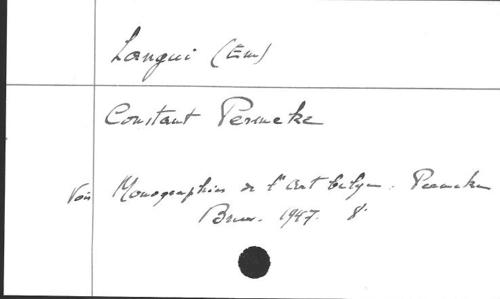 Langui (Em)
Constant Permeke
Voir Monographies de l'Art belge. Permeke
Brux. 1947. 8°